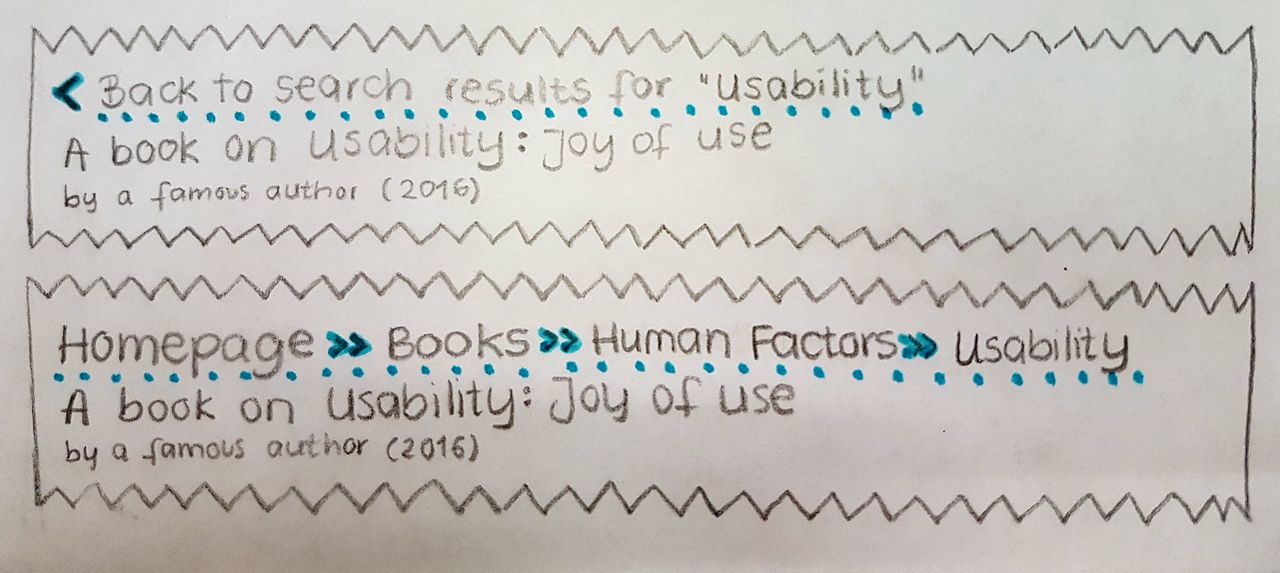 < Back to search results for "usability"
A book on usability: Joy of use
by a famous author (2016)
Homepage >> Books >> Human Factors >> Usability
A book on usability: Joy of use
by a famous author (2016)